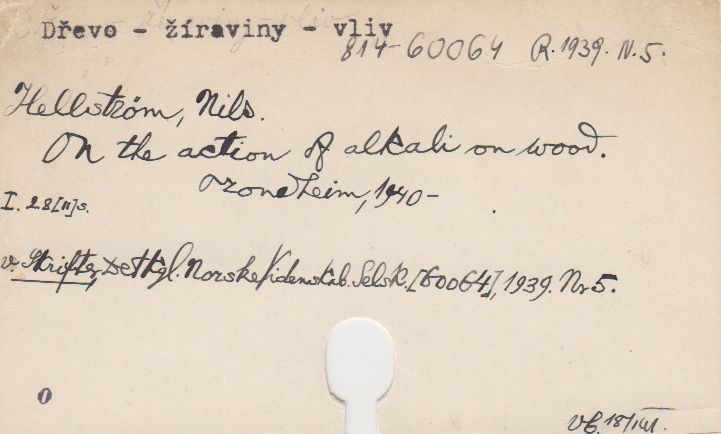 Dřevo - žíraviny - vliv
814-60064 R. 1939. N. 5.
Hellström, Nils.
On the action of alkali on wood.
Trondheim, 1940-
I. 28[II]s.
v. Skrifter, Det Kgl. Norske Videnskab. Selsk. [60064], 1939. Nr 5.
0
18/VII.